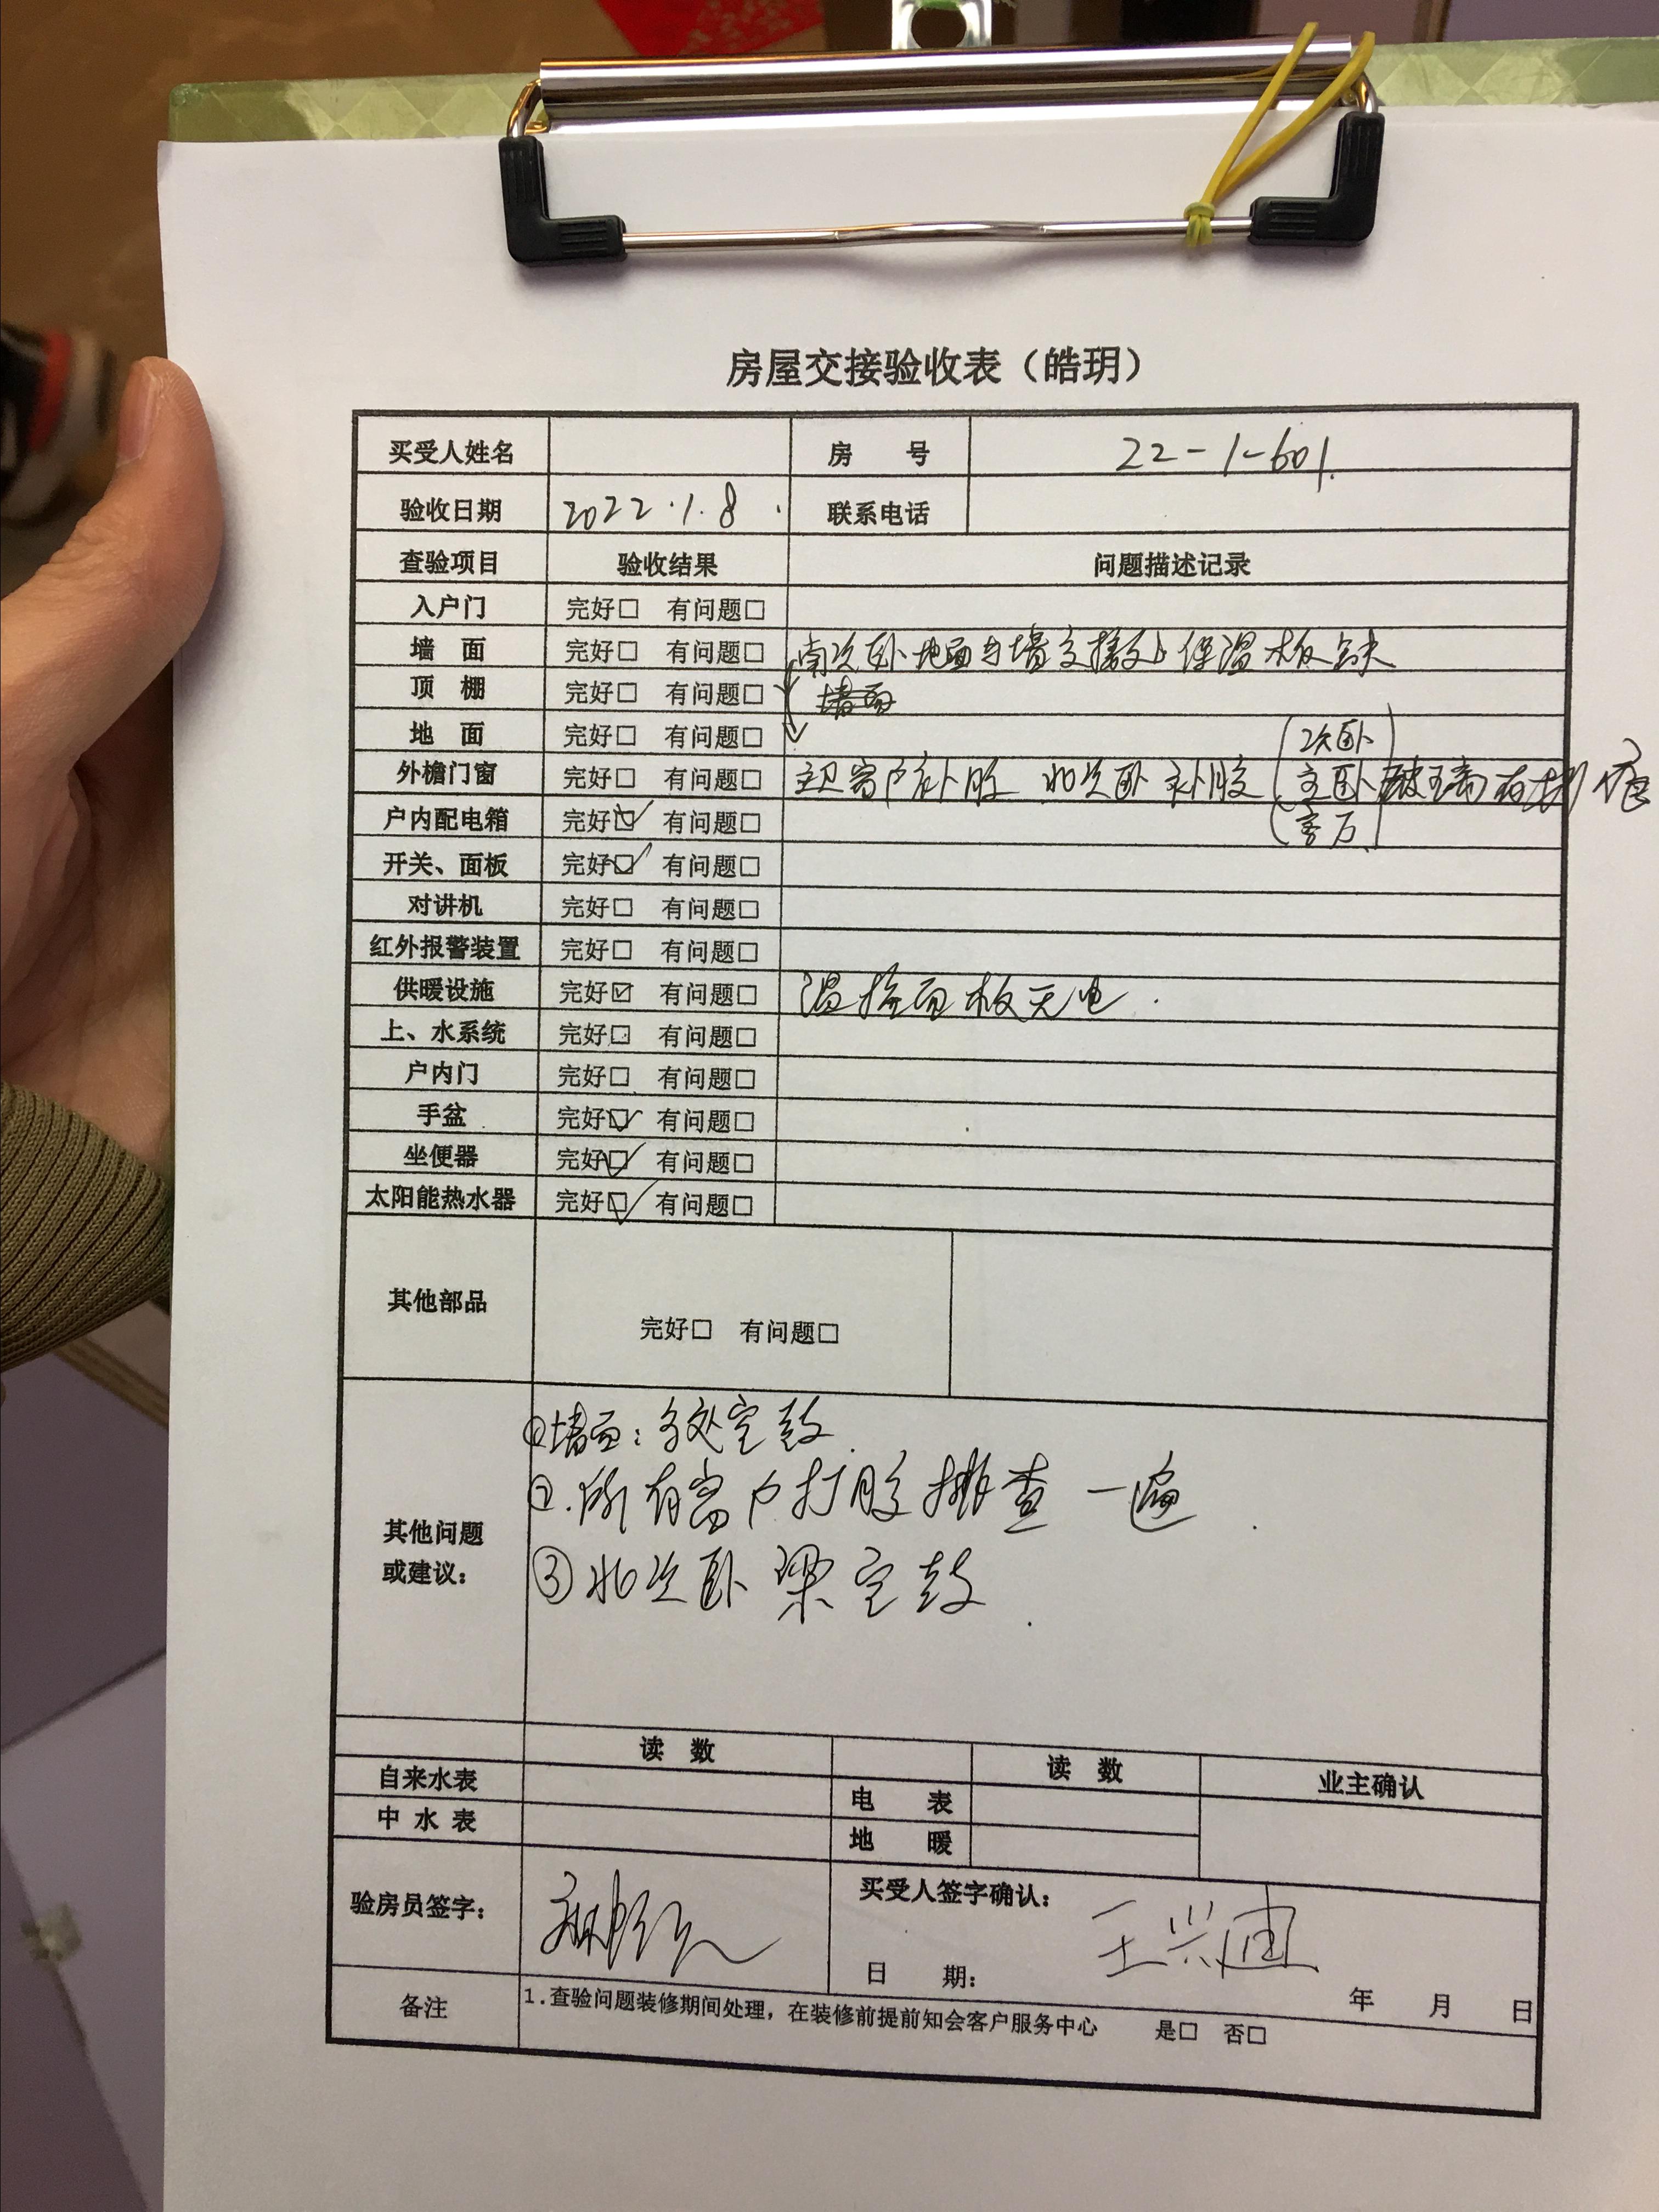 房屋交接验收表（皓玥）
买受人姓名 房 号 22-1-601.
验收日期 2022.1.8. 联系电话
查验项目 验收结果 问题描述记录
入户门 完好□ 有问题□
墙 面 完好□ 有问题□ 南次卧地面与墙交接处保温板缺失
顶 棚 完好□ 有问题□ 墙面
地 面 完好□ 有问题□
（次卧
外檐门窗 完好□ 有问题□ 主卫窗户补胶 北次卧补胶 主卧 玻璃有划痕
客厅）
户内配电箱 完好☑ 有问题□
开关、面板 完好☑ 有问题□
对讲机 完好□ 有问题□
红外报警装置 完好□ 有问题□
供暖设施 完好☑ 有问题□ 温控面板无电.
上、水系统 完好□ 有问题□
户内门 完好□ 有问题□
手盆 完好☑ 有问题□
坐便器 完好☑ 有问题□
太阳能热水器 完好☑ 有问题□
其他部品 完好□ 有问题□
其他问题
或建议：
①墙面：多处空鼓
②.所有窗户打胶排查一遍.
③北次卧梁空鼓.
读 数 读 数 业主确认
自来水表 电 表
中 水 表 地 暖
验房员签字： 买受人签字确认：
王兴迪
日 期： 年 月 日
备注 1.查验问题装修期间处理，在装修前提前知会客户服务中心 是□ 否□